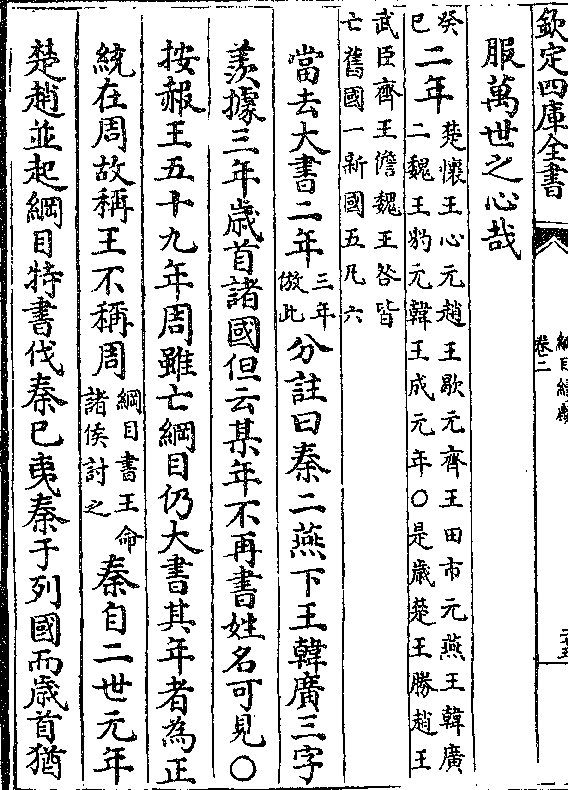 欽定四庫全書
綱目續麟
卷二
服萬世之心哉
癸巳二年楚懷王心元趙王歇元齊王田市元燕王韓廣
二魏王豹元韓王成元年○是歲楚王勝趙王
武臣齊王儋魏王咎皆
亡舊國一新國五凡六
當去大書二年三年倣此分註曰秦二燕下王韓廣三字
羨據三年歲首諸國但云某年不再書姓名可見○
按赧王五十九年周雖亡綱目仍大書其年者為正
統在周故稱王不稱周綱目書王命諸侯討之秦自二世元年
楚趙並起綱目特書伐秦已夷秦于列國而歲首猶